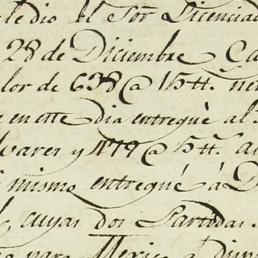 le dio el Sor Licencia
28 de Diciembre Ca
lor de 638 @ 15 tt. ne
e en este dia entreguè al
lvares y 479 @ 5 tt. a
i mismo entreguè à D
l, cuyas dos Partidas
para Mexico a